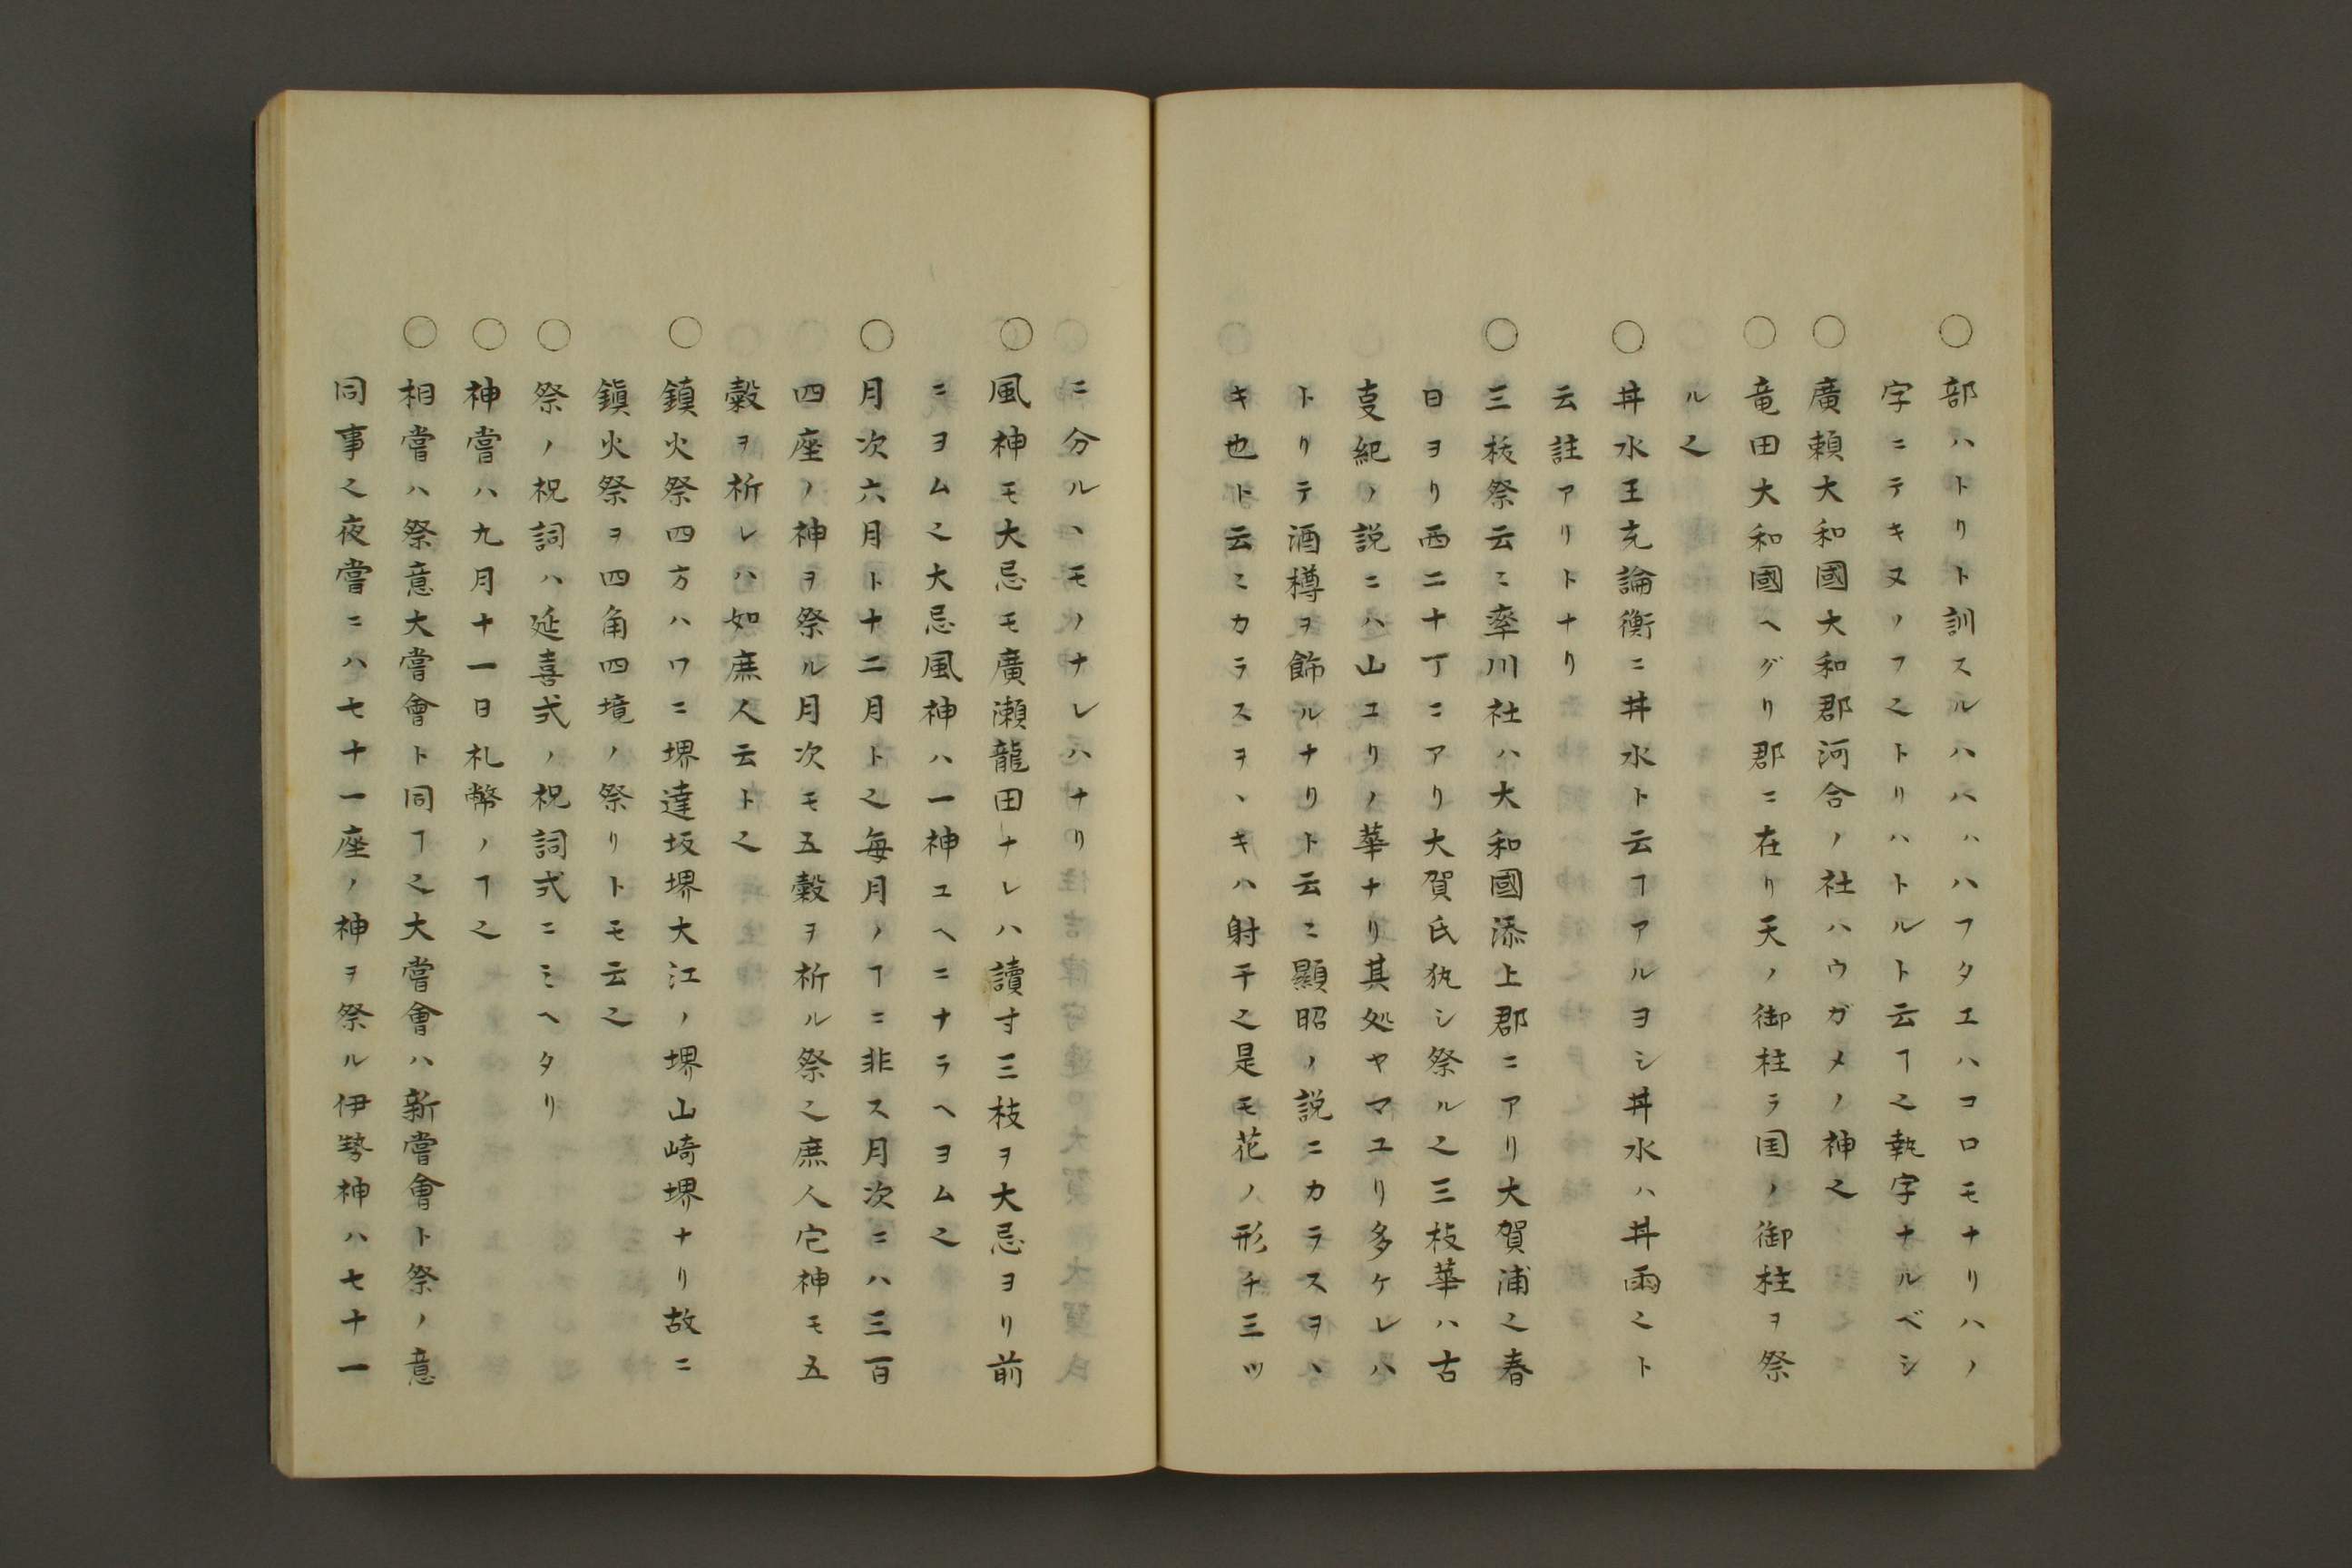 ○部ハトリト訓スルハハハハフタエハコロモナリハノ
字ニテキヌノフ之トリハトルト云ヿ之執字ナルベシ
○廣頼大和國大和郡河合ノ社ハウガメノ神之
○竜田大和國ヘグリ郡ニ在リ天ノ御柱ラ国ノ御柱ヲ祭
ル之
○丼水王充論衡ニ丼水ト云ヿアルヨシ丼水ハ丼雨之ト
云註アリトナリ
○三枝祭云ミ率川社ハ大和國添上郡ニアリ大賀浦之春
日ヨリ西二十丁ニアリ大賀氏執シ祭ル之三枝華ハ古
叓紀ノ説ニハ山ユリノ華ナリ其処ヤマユリ多ケレハ
トリテ酒樽ヲ飾ルナリト云ミ顯昭ノ説ニカラスヲヽ
キ也ト云ミカラスヲヽキハ射干之是モ花ノ形チ三ツ
ニ分ルヽモノナレハナリ
○風神モ大忌モ廣瀬龍田ナレハ讀寸三枝ヲ大忌ヨリ前
ニヨム之大忌風神ハ一神ユヘニナラヘヨム之
○月次六月ト十二月ト之毎月ノヿニ非ス月次ニハ三百
四座ノ神ヲ祭ル月次モ五穀ヲ祈ル祭之庶人宅神モ五
穀ヲ祈レハ如庶人云ト之
○鎮火祭四方ハワニ堺達坂堺大江ノ堺山崎堺ナリ故ニ
鎮火祭ヲ四角四境ノ祭リトモ云之
○祭ノ祝詞ハ延喜式ノ祝詞式ニミヘタリ
○神嘗ハ九月十一日札幣ノヿ之
○相嘗ハ祭意大嘗會ト同ヿ之大嘗會ハ新嘗會ト祭ノ意
同事之夜嘗ニハ七十一座ノ神ヲ祭ル伊勢神ハ七十一